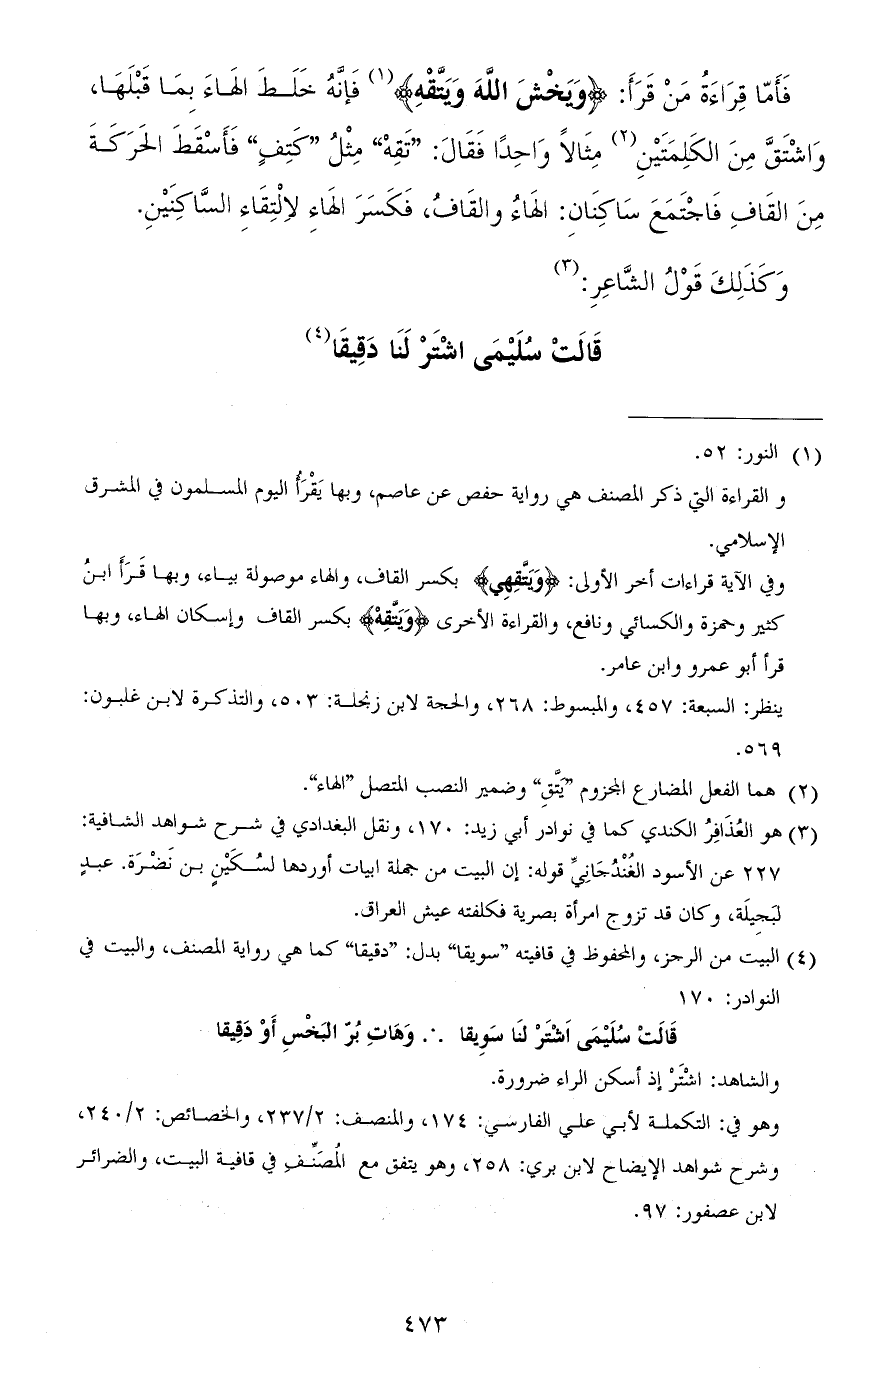 فَأَمّا قِرَاءَةُ مَنْ قَرَأَ: ﴿وَيَخْشَ اللَّهَ وَيَتَّقْهِ﴾(١) فَإِنَّهُ خَلَـطَ الهَـاءَ بِمَـا قَبْلَهَـا،
وَاشْتَقَّ مِنَ الكَلِمَتَيْنِ(٢) مِثَالاً وَاحِدًا فَقَالَ: ”تَقِهْ“ مِثْلُ ”كَتِفٍ“ فَأَسْقَطَ الحَرَكَـةَ
مِنَ القَافِ فَاجْتَمَعَ سَاكِنَانِ: الهَاءُ والقَافُ، فَكَسَرَ الهَاءِ لاِلْتِقَاءِ السَّاكِنَيْنِ.
وَكَذَلِكَ قَوْلُ الشَّاعِرِ:(٣)
قَالَتْ سُلَيْمَى اشْتَرْ لَنَا دَقِيقَا(٤)
(١) النور: ٥٢.
و القراءة التي ذكر المصنف هي رواية حفص عن عاصم، وبها يَقْرَأُ اليوم المسـلمون في المشرق
الإسلامي.
وفي الآية قراءات أخر الأولى: ﴿وَيَتَّقِهِي﴾ بكسر القاف، والهاء موصولة بيـاء، وبهـا قَـرَأَ ابـنُ
كثير وحمزة والكسائي ونافع، والقراءة الأخرى ﴿وَيَتَّقِهْ﴾ بكسر القاف وإسكان الهـاء، وبهـا
قرأ أبو عمرو وابن عامر.
ينظر: السبعة: ٤٥٧، والمبسوط: ٢٦٨، والحجة لابن زنجلـة: ٥٠٣، والتذكـرة لابـن غلبـون:
٥٦٩.
(٢) هما الفعل المضارع المجزوم ”يَتَّقِ“ وضمير النصب المتصل ”الهاء“.
(٣) هو العُذَافِرُ الكندي كما في نوادر أبي زيد: ١٧٠، ونقل البغدادي في شـرح شـواهد الشـافية:
٢٢٧ عن الأسود الغُنْدُجَانِيِّ قوله: إن البيت من جملة ابيات أوردها لسُـكَيْنٍ بـن نَضْـرَة. عبـدٍ
لبَجِيلَة، وكان قد تزوج امرأة بصرية فكلفته عيش العراق.
(٤) البيت من الرجز، والمحفوظ في قافيته ”سويقا“ بدل: ”دقيقا“ كما هي رواية المصنف، والبيت في
النوادر: ١٧٠
قَالَتْ سُلَيْمَى اَشْتَرْ لنَا سَوِيقا ∴ وَهَاتِ بُرّ البَخْسِ أَوْ دَقِيقا
والشاهد: اشْتَرْ إذ أسكن الراء ضرورة.
وهو في: التكملـة لأبـي علـي الفارسـي: ١٧٤، والمنصـف: ٢٣٧/٢، والخصـائص: ٢٤٠/٢،
وشرح شواهد الإيضاح لابن بري: ٢٥٨، وهو يتفق مع المُصَنِّـفِ في قافيـة البيـت، والضرائـر
لابن عصفور: ٩٧.
٤٧٣